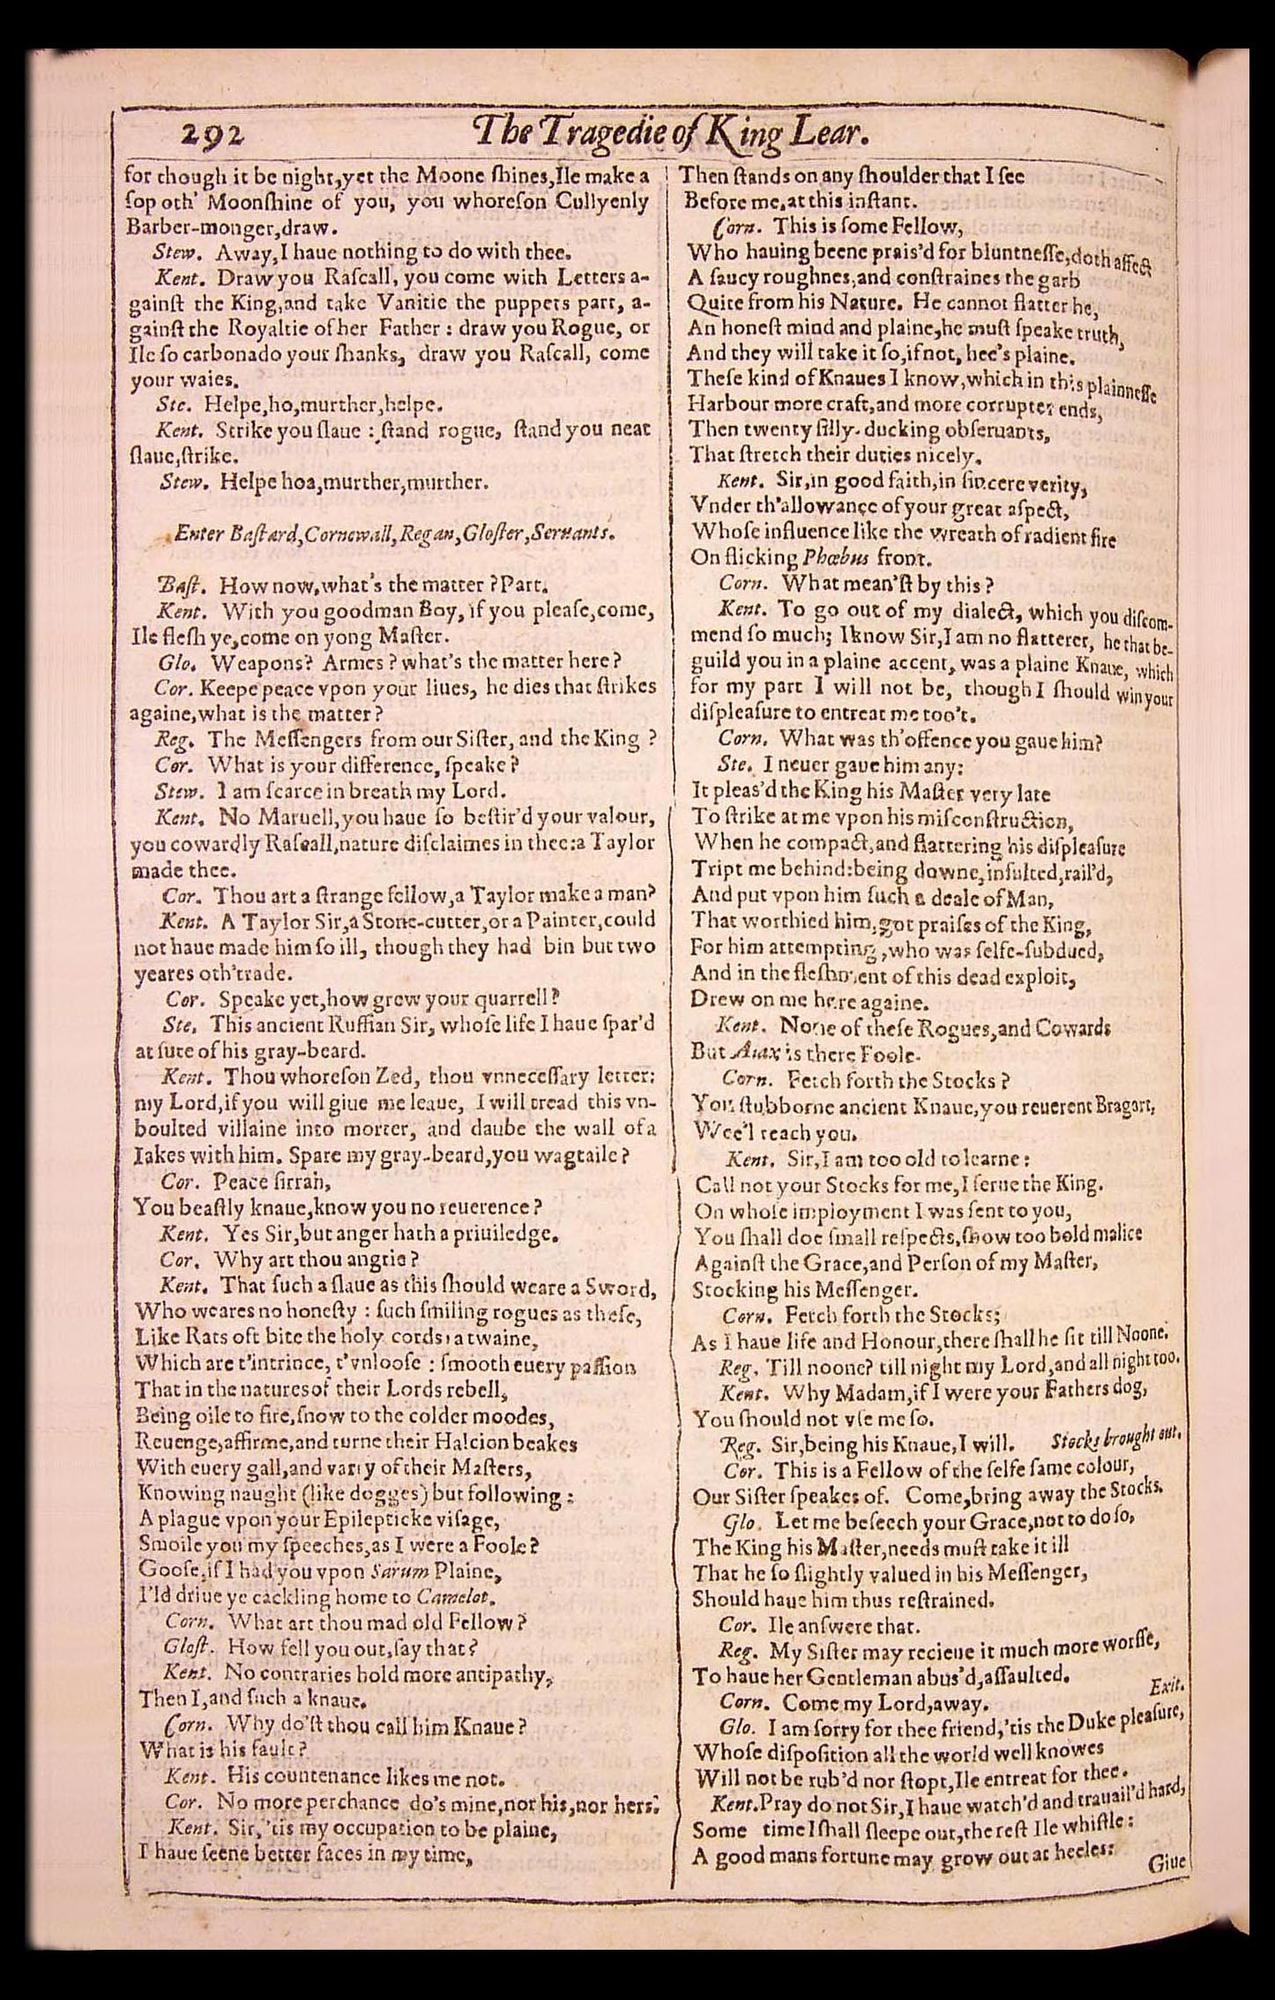 292
The Tragedie of King Lear.
for though it be night, yet the Moone ſhines, Ile make a
ſop oth' Moonſhine of you, you whoreſon Cullyenly
Barber-monger, draw.
Stew. Away, I haue nothing to do with thee.
Kent. Draw you Raſcall, you come with Letters a-
gainſt the King, and take Vanitie the puppets part, a-
gainſt the Royaltie of her Father: draw you Rogue, or
Ile ſo carbonado your ſhanks, draw you Raſcall, come
your waies.
Ste. Helpe, ho, murther, helpe.
Kent. Strike you ſlaue: ſtand rogue, ſtand you neat
ſlaue, ſtrike.
Stew. Helpe hoa, murther, murther.
Enter Baſtard, Cornewall, Regan, Gloſter, Seruants.
Baſt. How now, what's the matter? Part.
Kent. With you goodman Boy, if you pleaſe, come,
Ile fleſh ye, come on yong Maſter.
Glo. Weapons? Armes? what's the matter here?
Cor. Keepe peace vpon your liues, he dies that ſtrikes
againe, what is the matter?
Reg. The Meſſengers from our Siſter, and the King?
Cor. What is your difference, ſpeake?
Stew. I am ſcarce in breath my Lord.
Kent. No Maruell, you haue ſo beſtir'd your valour,
you cowardly Raſcall, nature diſclaimes in thee: a Taylor
made thee.
Cor. Thou art a ſtrange fellow, a Taylor make a man?
Kent. A Taylor Sir, a Stone-cutter, or a Painter, could
not haue made him ſo ill, though they had bin but two
yeares oth'trade.
Cor. Speake yet, how grew your quarrell?
Ste. This ancient Ruffian Sir, whoſe life I haue ſpar'd
at ſute of his gray-beard.
Kent. Thou whoreſon Zed, thou vnneceſſary letter:
my Lord, if you will giue me leaue, I will tread this vn-
boulted villaine into morter, and daube the wall of a
Iakes with him. Spare my gray-beard, you wagtaile?
Cor. Peace ſirrah,
You beaſtly knaue, know you no reuerence?
Kent. Yes Sir, but anger hath a priuiledge.
Cor. Why art thou angrie?
Kent. That ſuch a ſlaue as this ſhould weare a Sword,
Who weares no honeſty: ſuch ſmiling rogues as theſe,
Like Rats oft bite the holy cords a twaine,
Which are t'intrince, t'vnlooſe: ſmooth euery paſſion
That in the natures of their Lords rebell,
Being oile to fire, ſnow to the colder moodes,
Reuenge, affirme, and turne their Halcion beakes
With euery gall, and varry of their Maſters,
Knowing naught (like dogges) but following:
A plague vpon your Epilepticke viſage,
Smoile you my ſpeeches, as I were a Foole?
Gooſe, if I had you vpon Sarum Plaine,
I'ld driue ye cackling home to Camelot.
Corn. What art thou mad old Fellow?
Gloſt. How fell you out, ſay that?
Kent. No contraries hold more antipathy,
Then I, and ſuch a knaue.
Corn. Why do'ſt thou call him Knaue?
What is his fault?
Kent. His countenance likes me not.
Cor. No more perchance do's mine, nor his, nor hers.
Kent. Sir, 'tis my occupation to be plaine,
I haue ſeene better faces in my time,
Then ſtands on any ſhoulder that I ſee
Before me, at this inſtant.
Corn. This is ſome Fellow,
Who hauing beene prais'd for bluntneſſe, doth affect
A ſaucy roughnes, and conſtraines the garb
Quite from his Nature. He cannot flatter he,
An honeſt mind and plaine, he muſt ſpeake truth,
And they will take it ſo, if not, hee's plaine.
Theſe kind of Knaues I know, which in this plainneſſe
Harbour more craft, and more corrupter ends,
Then twenty ſilly-ducking obſeruants,
That ſtretch their duties nicely.
Kent. Sir, in good faith, in ſincere verity,
Vnder th'allowance of your great aſpect,
Whoſe influence like the wreath of radient fire
On flicking Phœbus front.
Corn. What mean'ſt by this?
Kent. To go out of my dialect, which you diſcom-
mend ſo much; I know Sir, I am no flatterer, he that be-
guild you in a plaine accent, was a plaine Knaue, which
for my part I will not be, though I ſhould win your
diſpleaſure to entreat me too't.
Corn. What was th'offence you gaue him?
Ste. I neuer gaue him any:
It pleas'd the King his Maſter very late
To ſtrike at me vpon his miſconſtruction,
When he compact, and flattering his diſpleaſure
Tript me behind: being downe, inſulted, rail'd,
And put vpon him ſuch a deale of Man,
That worthied him, got praiſes of the King,
For him attempting, who was ſelfe-ſubdued,
And in the fleſhment of this dead exploit,
Drew on me here againe.
Kent. None of theſe Rogues, and Cowards
But Aiax is there Foole.
Corn. Fetch forth the Stocks?
You ſtubborne ancient Knaue, you reuerent Bragart,
Wee'l teach you.
Kent. Sir, I am too old to learne:
Call not your Stocks for me, I ſerue the King.
On whoſe imployment I was ſent to you,
You ſhall doe ſmall reſpects, ſhow too bold malice
Againſt the Grace, and Perſon of my Maſter,
Stocking his Meſſenger.
Corn. Fetch forth the Stocks;
As I haue life and Honour, there ſhall he ſit till Noone.
Reg. Till noone? till night my Lord, and all night too.
Kent. Why Madam, if I were your Fathers dog,
You ſhould not vſe me ſo.
Reg. Sir, being his Knaue, I will. Stocks brought out.
Cor. This is a Fellow of the ſelfe ſame colour,
Our Siſter ſpeakes of. Come, bring away the Stocks.
Glo. Let me beſeech your Grace, not to do ſo,
The King his Maſter, needs muſt take it ill
That he ſo ſlightly valued in his Meſſenger,
Should haue him thus reſtrained.
Cor. Ile anſwere that.
Reg. My Siſter may recieue it much more worſſe,
To haue her Gentleman abus'd, aſſaulted.
Corn. Come my Lord, away. Exit.
Glo. I am ſorry for thee friend, 'tis the Duke pleaſure,
Whoſe diſpoſition all the world well knowes
Will not be rub'd nor ſtopt, Ile entreat for thee.
Kent. Pray do not Sir, I haue watch'd and trauail'd hard,
Some time I ſhall ſleepe out, the reſt Ile whiſtle:
A good mans fortune may grow out at heeles:
Giue